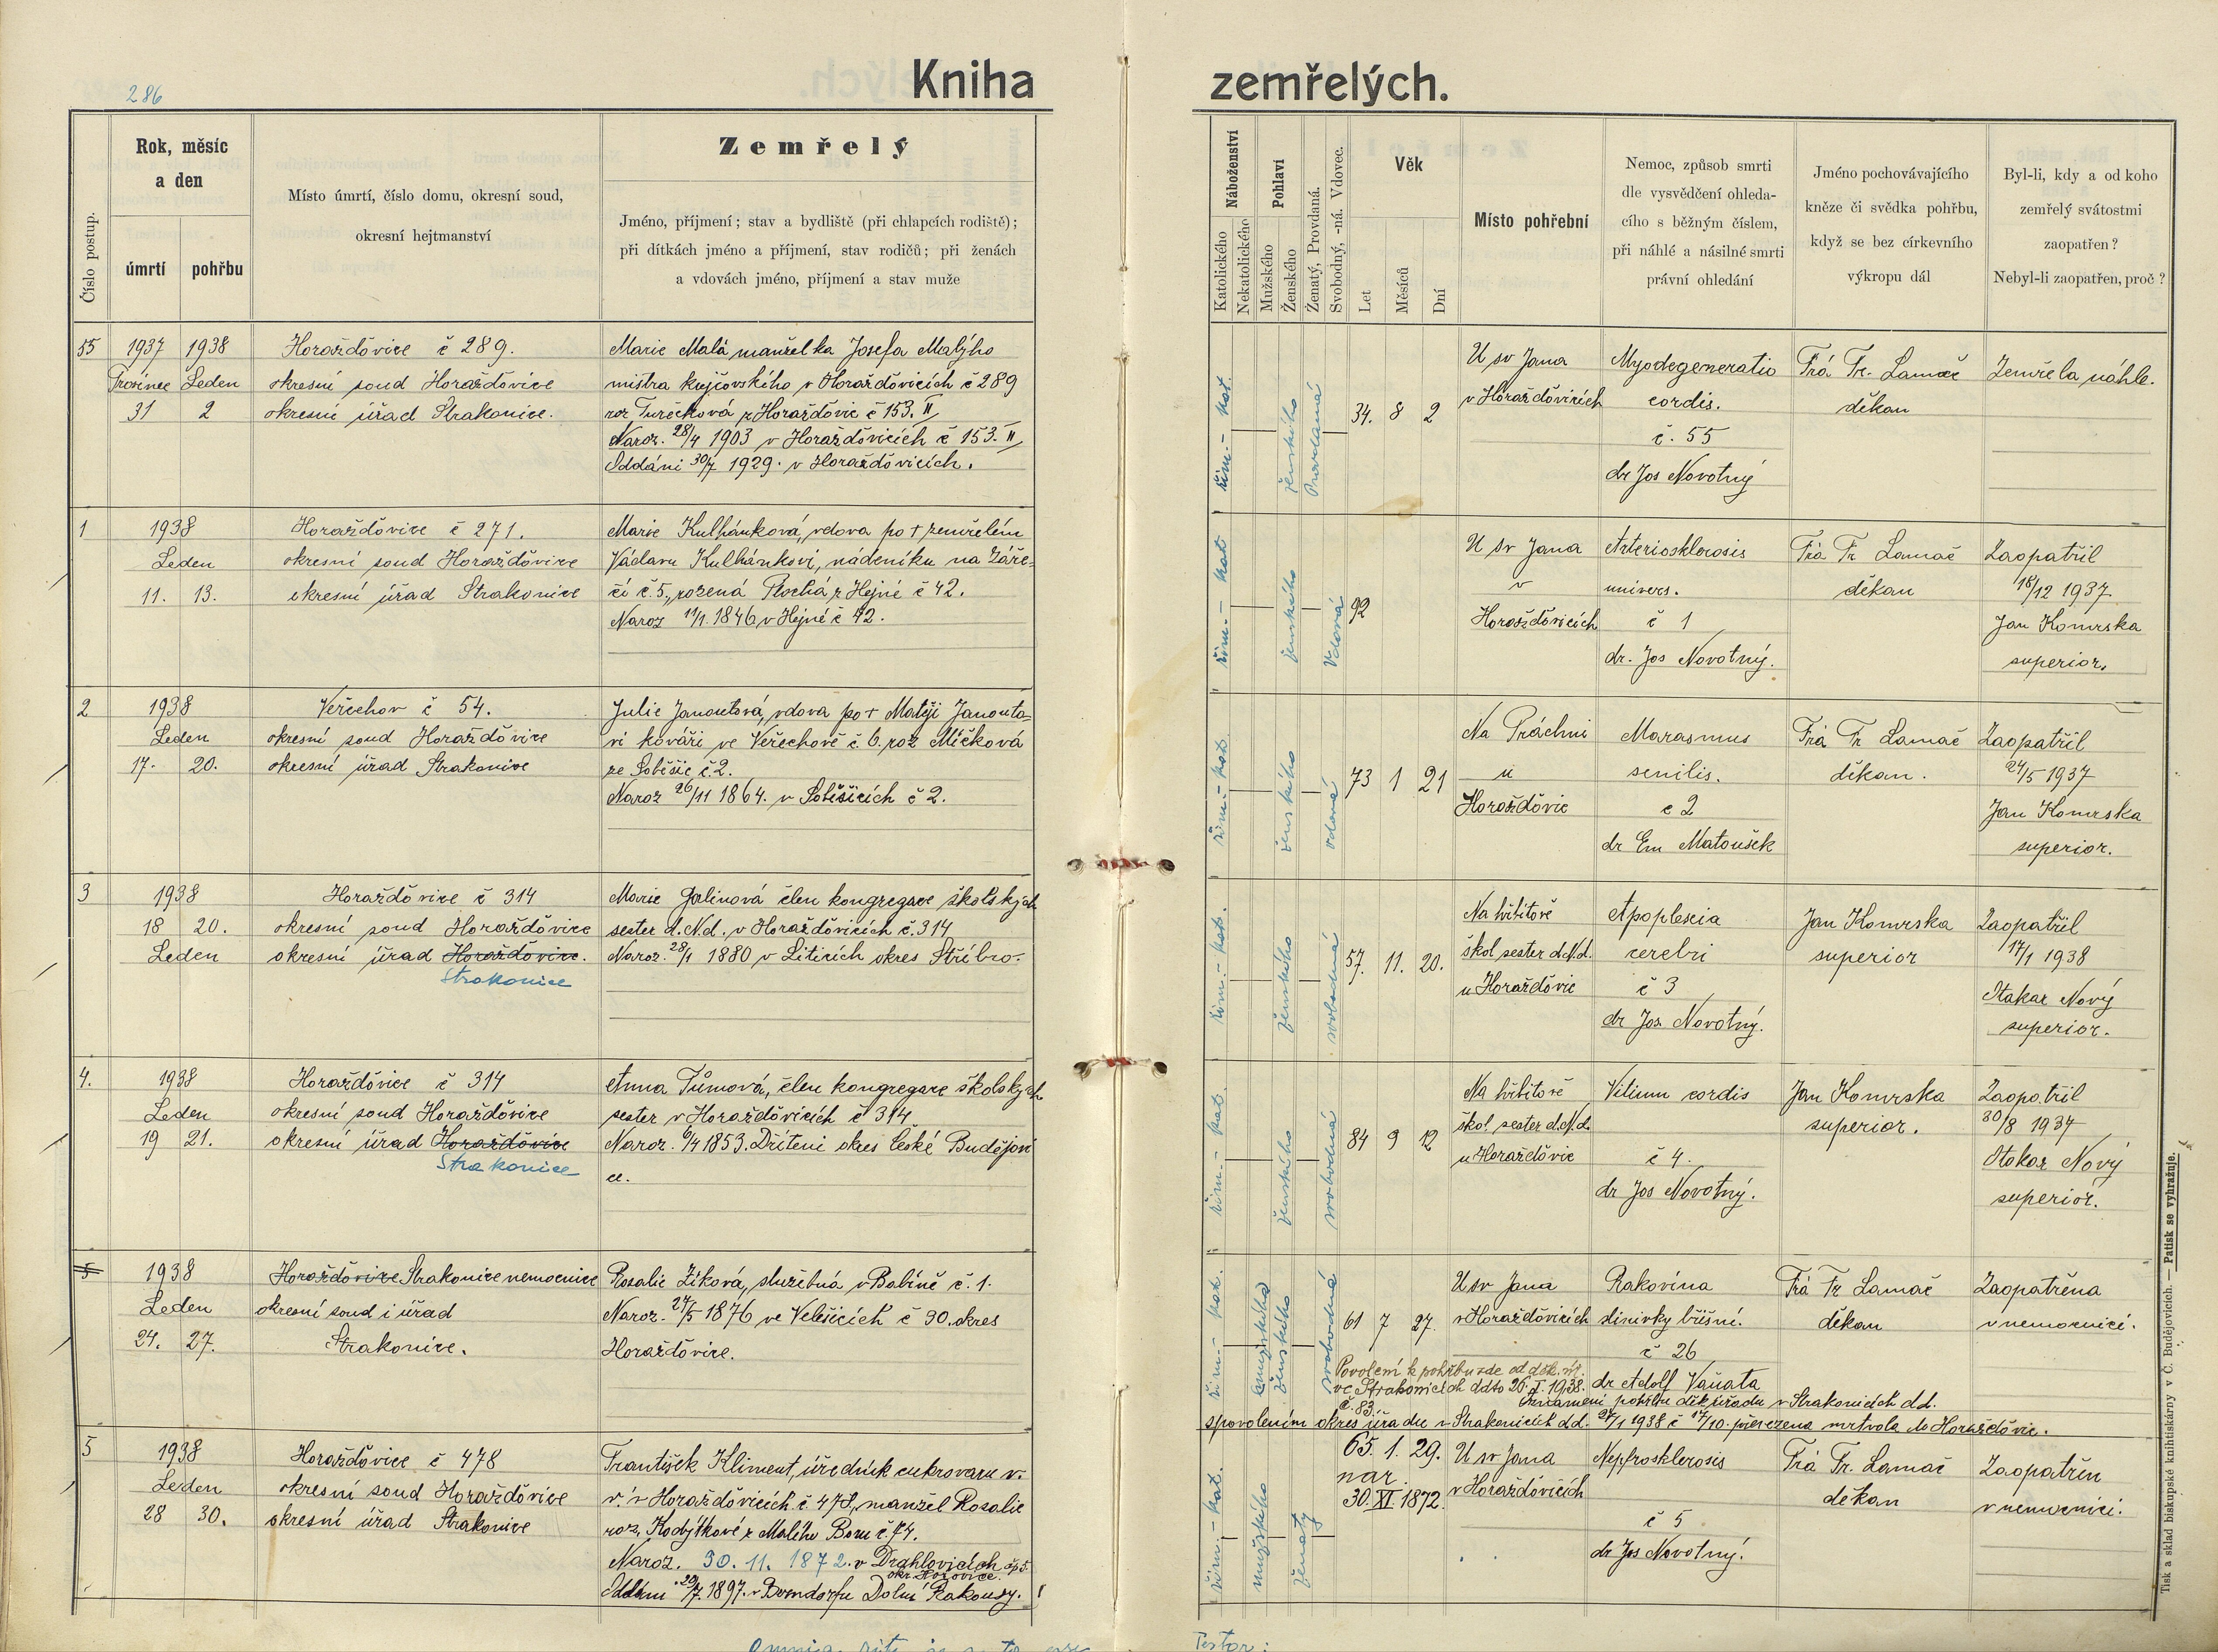 286
Kniha zemřelých.
Číslo postup.
Rok, měsíc
a den
úmrtí
pohřbu
Místo úmrtí, číslo domu, okresní soud,
okresní hejtmanství
Zemřelý
Jméno, příjmení; stav a bydliště (při chlapcích rodiště);
při dítkách jméno a příjmení, stav rodičů; při ženách
a vdovách jméno, příjmení a stav muže
Náboženství
Katolického
Nekatolického
Pohlaví
Mužského
Ženského
Ženatý, Provdaná.
Svobodný, -ná. Vdovec.
Věk
Let
Měsíců
Dní
Místo pohřební
Nemoc, způsob smrti
dle vysvědčení ohleda-
cího s běžným číslem,
při náhlé a násilné smrti
právní ohledání
Jméno pochovávajícího
kněze či svědka pohřbu,
když se bez církevního
výkropu dál
Byl-li, kdy a od koho
zemřelý svátostmi
zaopatřen?
Nebyl-li zaopatřen, proč?
55
1937 1938
Prosinec Leden
31 2
Horažďovice č 289.
okresní soud Horažďovice
okresní úřad Strakonice.
Marie Malá manželka Josefa Malýho
mistra krejčovského v Horažďovicích č 289
roz Turečková z Horažďovic č 153. II
Naroz. 28/4 1903 v Horažďovicích č 153. II
Oddáni 30/7 1929. v Horažďovicích.
řím.- kat.
ženského
Provdaná
34. 8 2
U sv Jana
v Horažďovicích
Myodegeneratio
cordis.
č. 55
dr Jos Novotný
Fr. Lamač
děkan
Zemřela náhle.
1
1938
Leden
11. 13.
Horažďovice č 271.
okresní soud Horažďovice
okresní úřad Strakonice
Marie Kulhánková, vdova po † zemřelém
Václavu Kulhánkovi, nádeníku na Záře-
čí č. 5, rozená Plochá z Hejné č 42.
Naroz 11/1. 1846 v Hejné č 42.
řím.- kat
ženského
Vdova
92
U sv Jana
v
Horažďovicích
Arteriosklerosis
univers.
č 1
dr. Jos Novotný.
Fr Lamač
děkan
Zaopatřil
18/12 1937
Jan Komrska
superior.
2
1938
Leden
17. 20.
Veřechov č 54.
okresní soud Horažďovice
okresní úřad Strakonice
Julie Janoutová, vdova po † Matěji Janouto-
vi kováři ve Veřechově č 6. roz Míčková
ze Soběšic č 2.
Naroz 26/11 1864. v Soběšicích č 2.
řím.- kat
ženského
vdova
73 1 21
Na Práchni
u
Horažďovic
Marasmus
senilis.
č 2
dr Em Matoušek
Fr Lamač
děkan.
Zaopatřil
24/5 1937
Jan Komrska
superior.
3
1938
18 20.
Leden
Horažďovice č 314
okresní soud Horažďovice
okresní úřad Horažďovice.
Strakonice
Marie Galinová člen kongregace školských
sester d. N. d. v Horažďovicích č. 314
Naroz. 28/1 1880 v Liticích okres Stříbro.
řím.- kat.
ženského
svobodná
57. 11. 20.
Na hřbitově
škol sester d. N. d.
u Horažďovic
Apoplexia
cerebri
č 3
dr Jos. Novotný.
Jan Komrska
superior
Zaopatřil
17/1 1938
Otakar Nový
superior.
4.
1938
Leden
19 21.
Horažďovice č 314
okresní soud Horažďovice
okresní úřad Horažďovice
Strakonice
Anna Tůmová, člen kongregace školských
sester v Horažďovicích č 314
Naroz. 6/4 1853. Dříteni okres České Budějovi
ce.
řím.- kat.
ženského
svobodná
84 9 12
Na hřbitově
škol. sester d. N. d.
u Horažďovic
Vitium cordis
č 4.
dr Jos Novotný.
Jan Komrska
superior.
Zaopatřil
30/8 1937
Otakar Nový
superior.
5
1938
Leden
24. 27.
Horažďovice Strakonice nemocnice
okresní soud i úřad
Strakonice.
Rosalie Zíková, služebná v Babíně č. 1.
Naroz. 27/5 1876 ve Velešicích č 30. okres
Horažďovice.
řím.- kat.
mužského
ženského
svobodná
61 7 27.
U sv Jana
v Horažďovicích
Rakovina
slinivky břišní.
č 26
dr Adolf Vaňata
Fr Lamač
děkan
Zaopatřena
v nemocnici.
Povolení k pohřbu zde od děk. úř.
ve Strakonicích ddto 26. I. 1938.
č. 83.
Oznámení pohřbu děk. úřadu v Strakonicích d.d.
s povolením okres úřadu v Strakonicích d.d. 27/1 1938 č 17/10. převezena mrtvola do Horažďovic.
5
1938
Leden
28 30.
Horažďovice č 478
okresní soud Horažďovice
okresní úřad Strakonice
František Kliment, úředník cukrovaru v.
v. v Horažďovicích č. 478, manžel Rosalie
roz. Kobýtkové z Malého Boru č. 74.
Naroz. 30. 11. 1872. v Drahlovicích čp 5.
okr. Hořovice.
Oddáni 29/7. 1897. v Berndorfu Dolní Rakousy.
řím.- kat.
mužského
ženatý
65. 1. 29.
nar.
30. XI. 1872.
U sv Jana
v Horažďovicích
Nephrosklerosis
č 5
dr Jos Novotný.
Fr. Lamač
děkan
Zaopatřen
v nemocnici.
Testor:
Tisk a sklad biskupské knihtiskárny v Č. Budějovicích. — Patisk se vyhražuje.